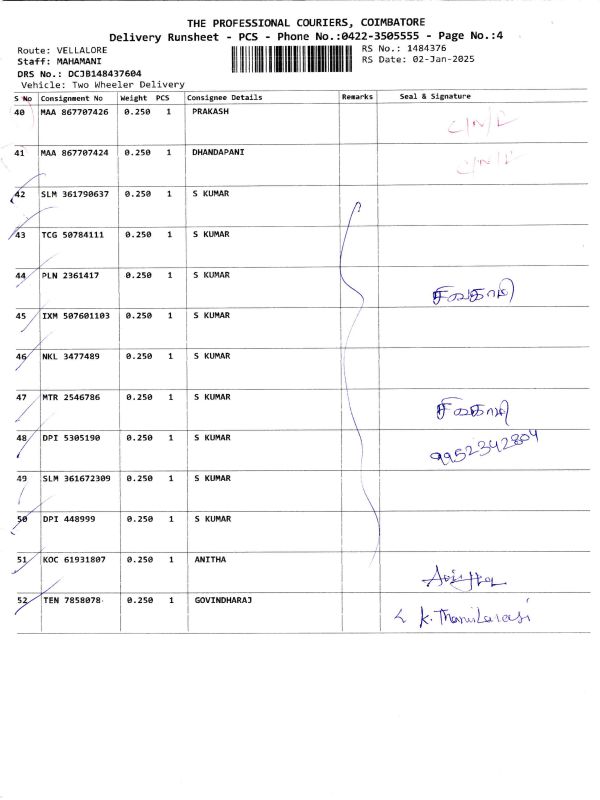 THE PROFESSIONAL COURIERS, COIMBATORE
Delivery Runsheet - PCS - Phone No.:0422-3505555 - Page No.:4
Route: VELLALORE RS No.: 1484376
Staff: MAHAMANI RS Date: 02-Jan-2025
DRS No.: DCJB148437604
Vehicle: Two Wheeler Delivery
S No Consignment No Weight PCS Consignee Details Remarks Seal & Signature
40 MAA 867707426 0.250 1 PRAKASH C/N/R
41 MAA 867707424 0.250 1 DHANDAPANI C/N/R
42 SLM 361790637 0.250 1 S KUMAR
43 TCG 50784111 0.250 1 S KUMAR
44 PLN 2361417 0.250 1 S KUMAR சிவகாமி
45 IXM 507601103 0.250 1 S KUMAR
46 NKL 3477489 0.250 1 S KUMAR
47 MTR 2546786 0.250 1 S KUMAR சிவகாமி
48 DPI 5305190 0.250 1 S KUMAR 9952342804
49 SLM 361672309 0.250 1 S KUMAR
50 DPI 448999 0.250 1 S KUMAR
51 KOC 61931807 0.250 1 ANITHA Anitha
52 TEN 7858078 0.250 1 GOVINDHARAJ K. Thamilarasi